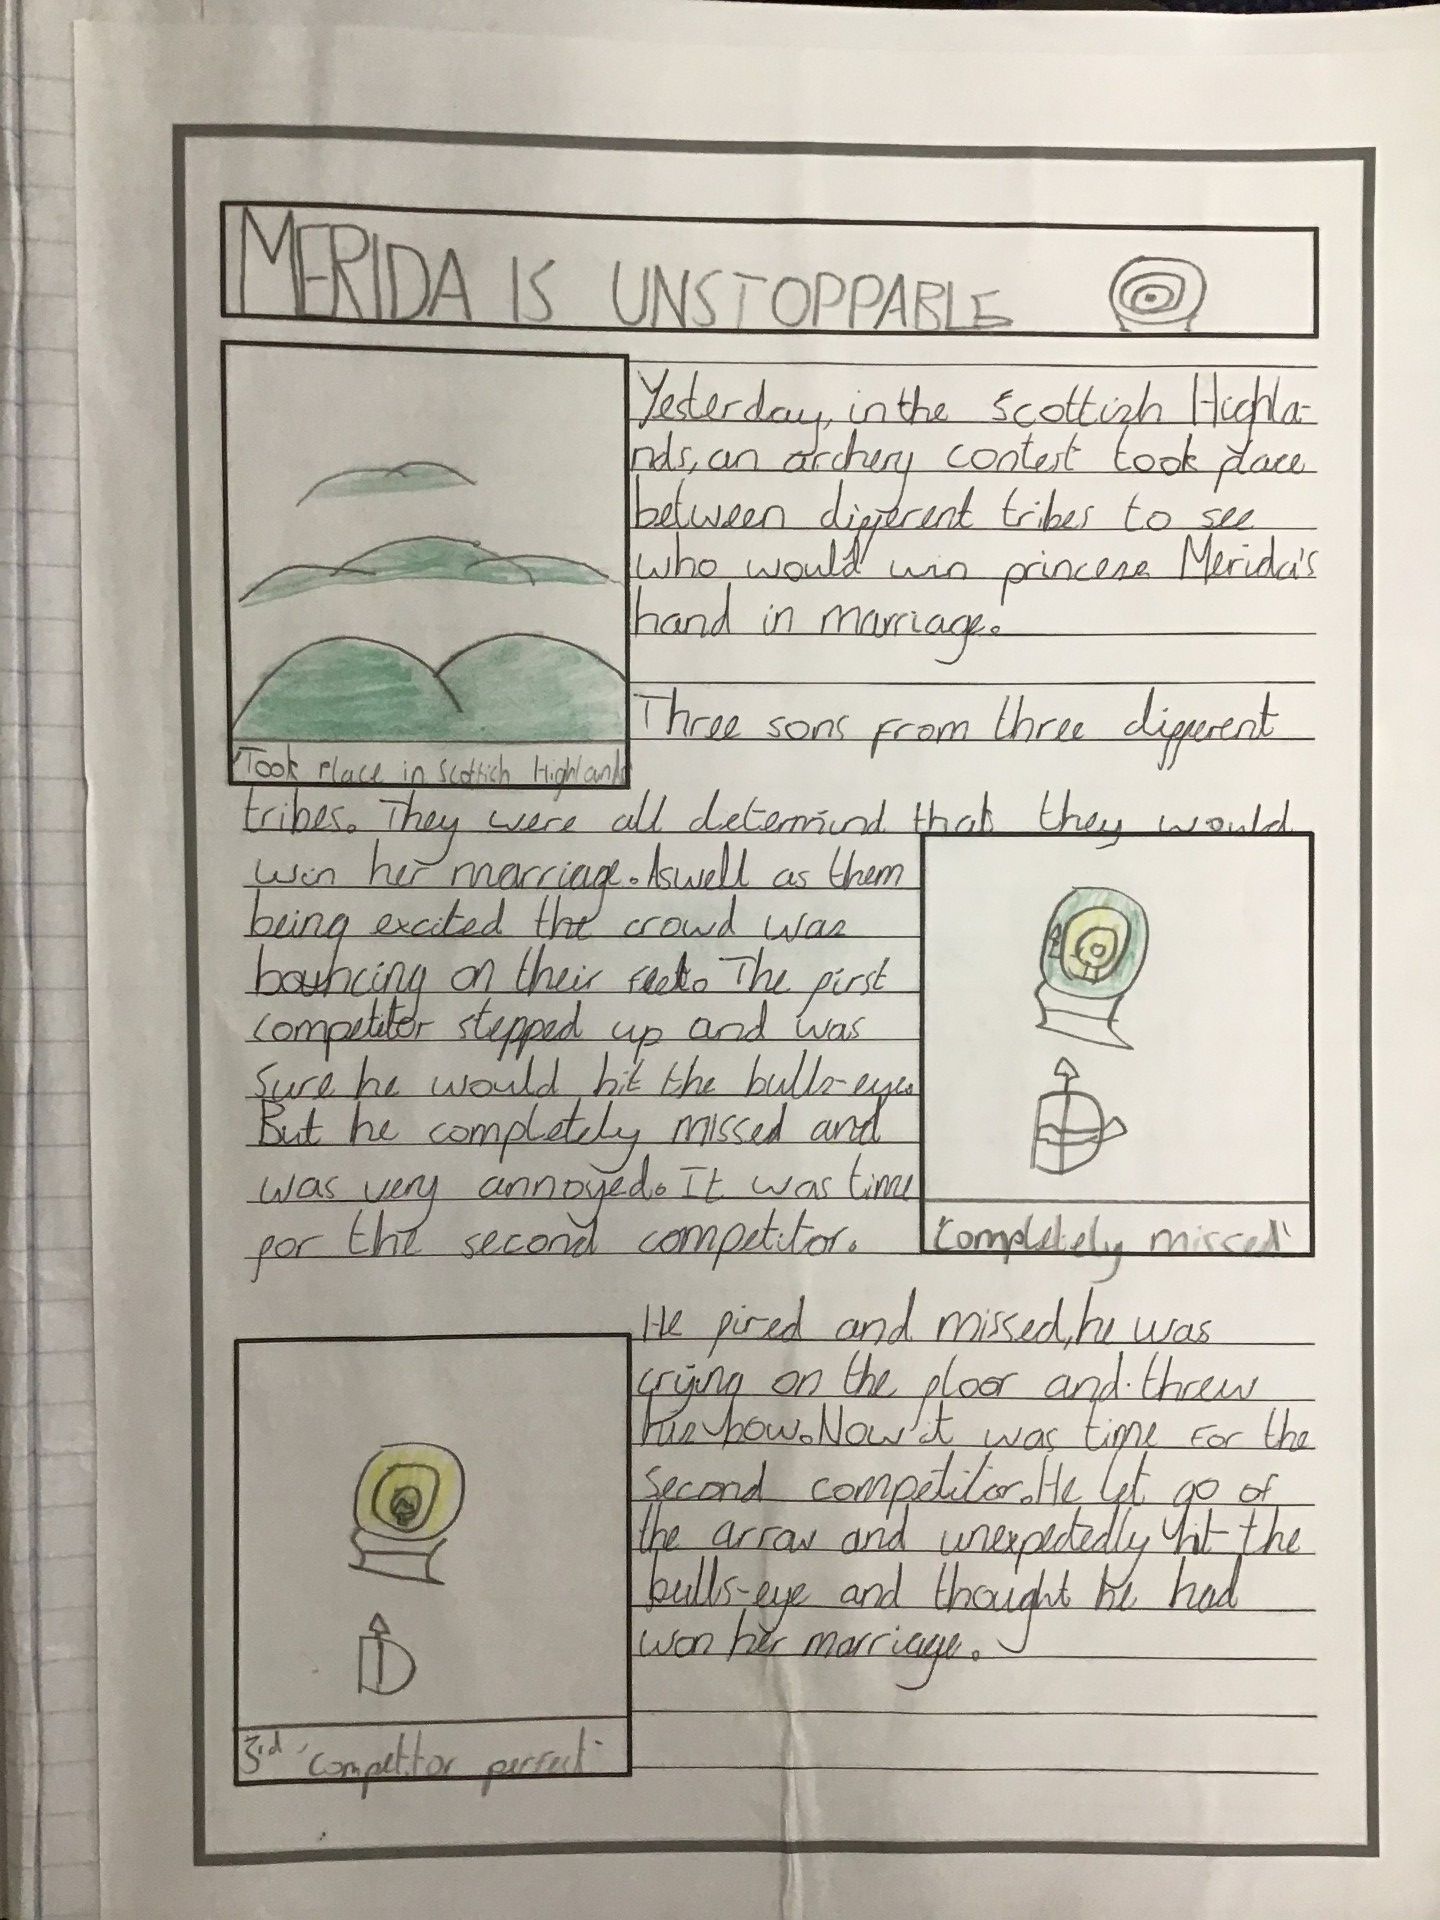 MERIDA IS UNSTOPPABLE
Yesterday, in the Scottish Highla-
nds, an archery contest took place
between different tribes to see
who would win princess Merida's
hand in marriage.
Three sons from three different
'Took Place in Scottish Highlands
tribes. They were all determind that they would
win her marriage. Aswell as them
being excited the crowd was
bouncing on their feet. The first
competitor stepped up and was
sure he would hit the bulls-eye.
But he completely missed and
was very annoyed. It was time
for the second competitor.
'Completely missed'
He fired and missed, he was
crying on the floor and threw
his bow. Now it was time for the
second competitor. He let go of
the arrow and unexpectedly hit the
bulls-eye and thought he had
won her marriage.
3rd 'competitor perfect'